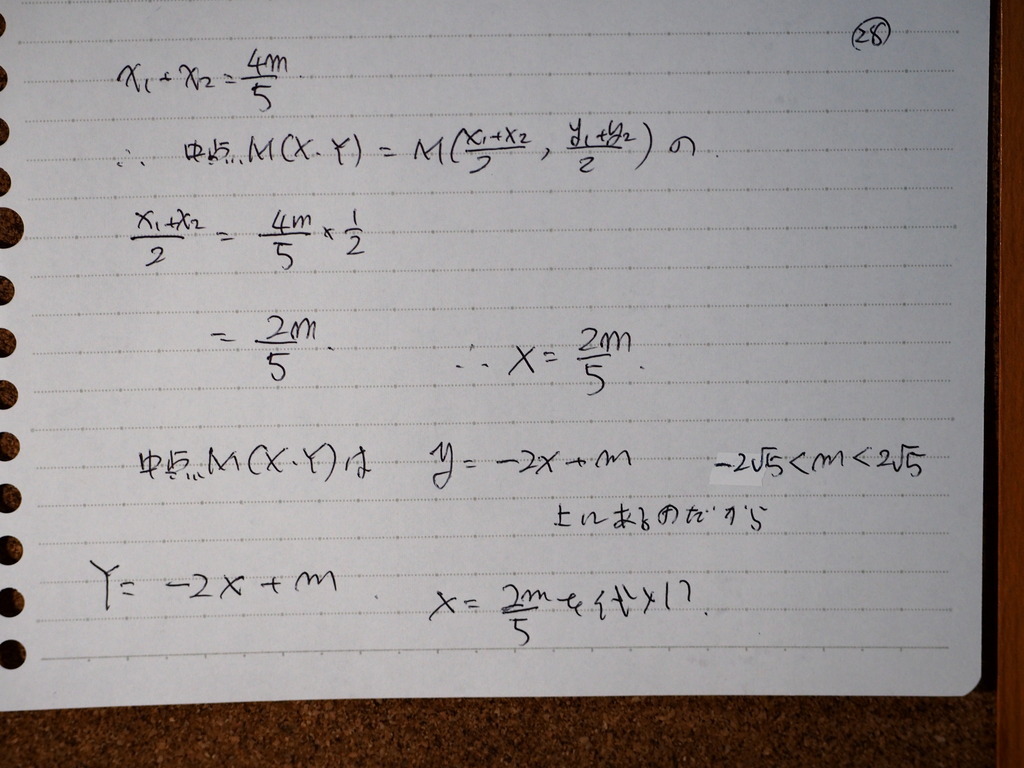 ㉘
x₁+x₂=4m/5
∴ 中点M(X・Y) = M(x₁+x₂/2, y₁+y₂/2) の
x₁+x₂/2 = 4m/5 × 1/2
= 2m/5. ∴ X=2m/5.
中点M(X・Y)は y=-2x+m -2√5<m<2√5
上にあるのだから
Y= -2x+m. x=2m/5を